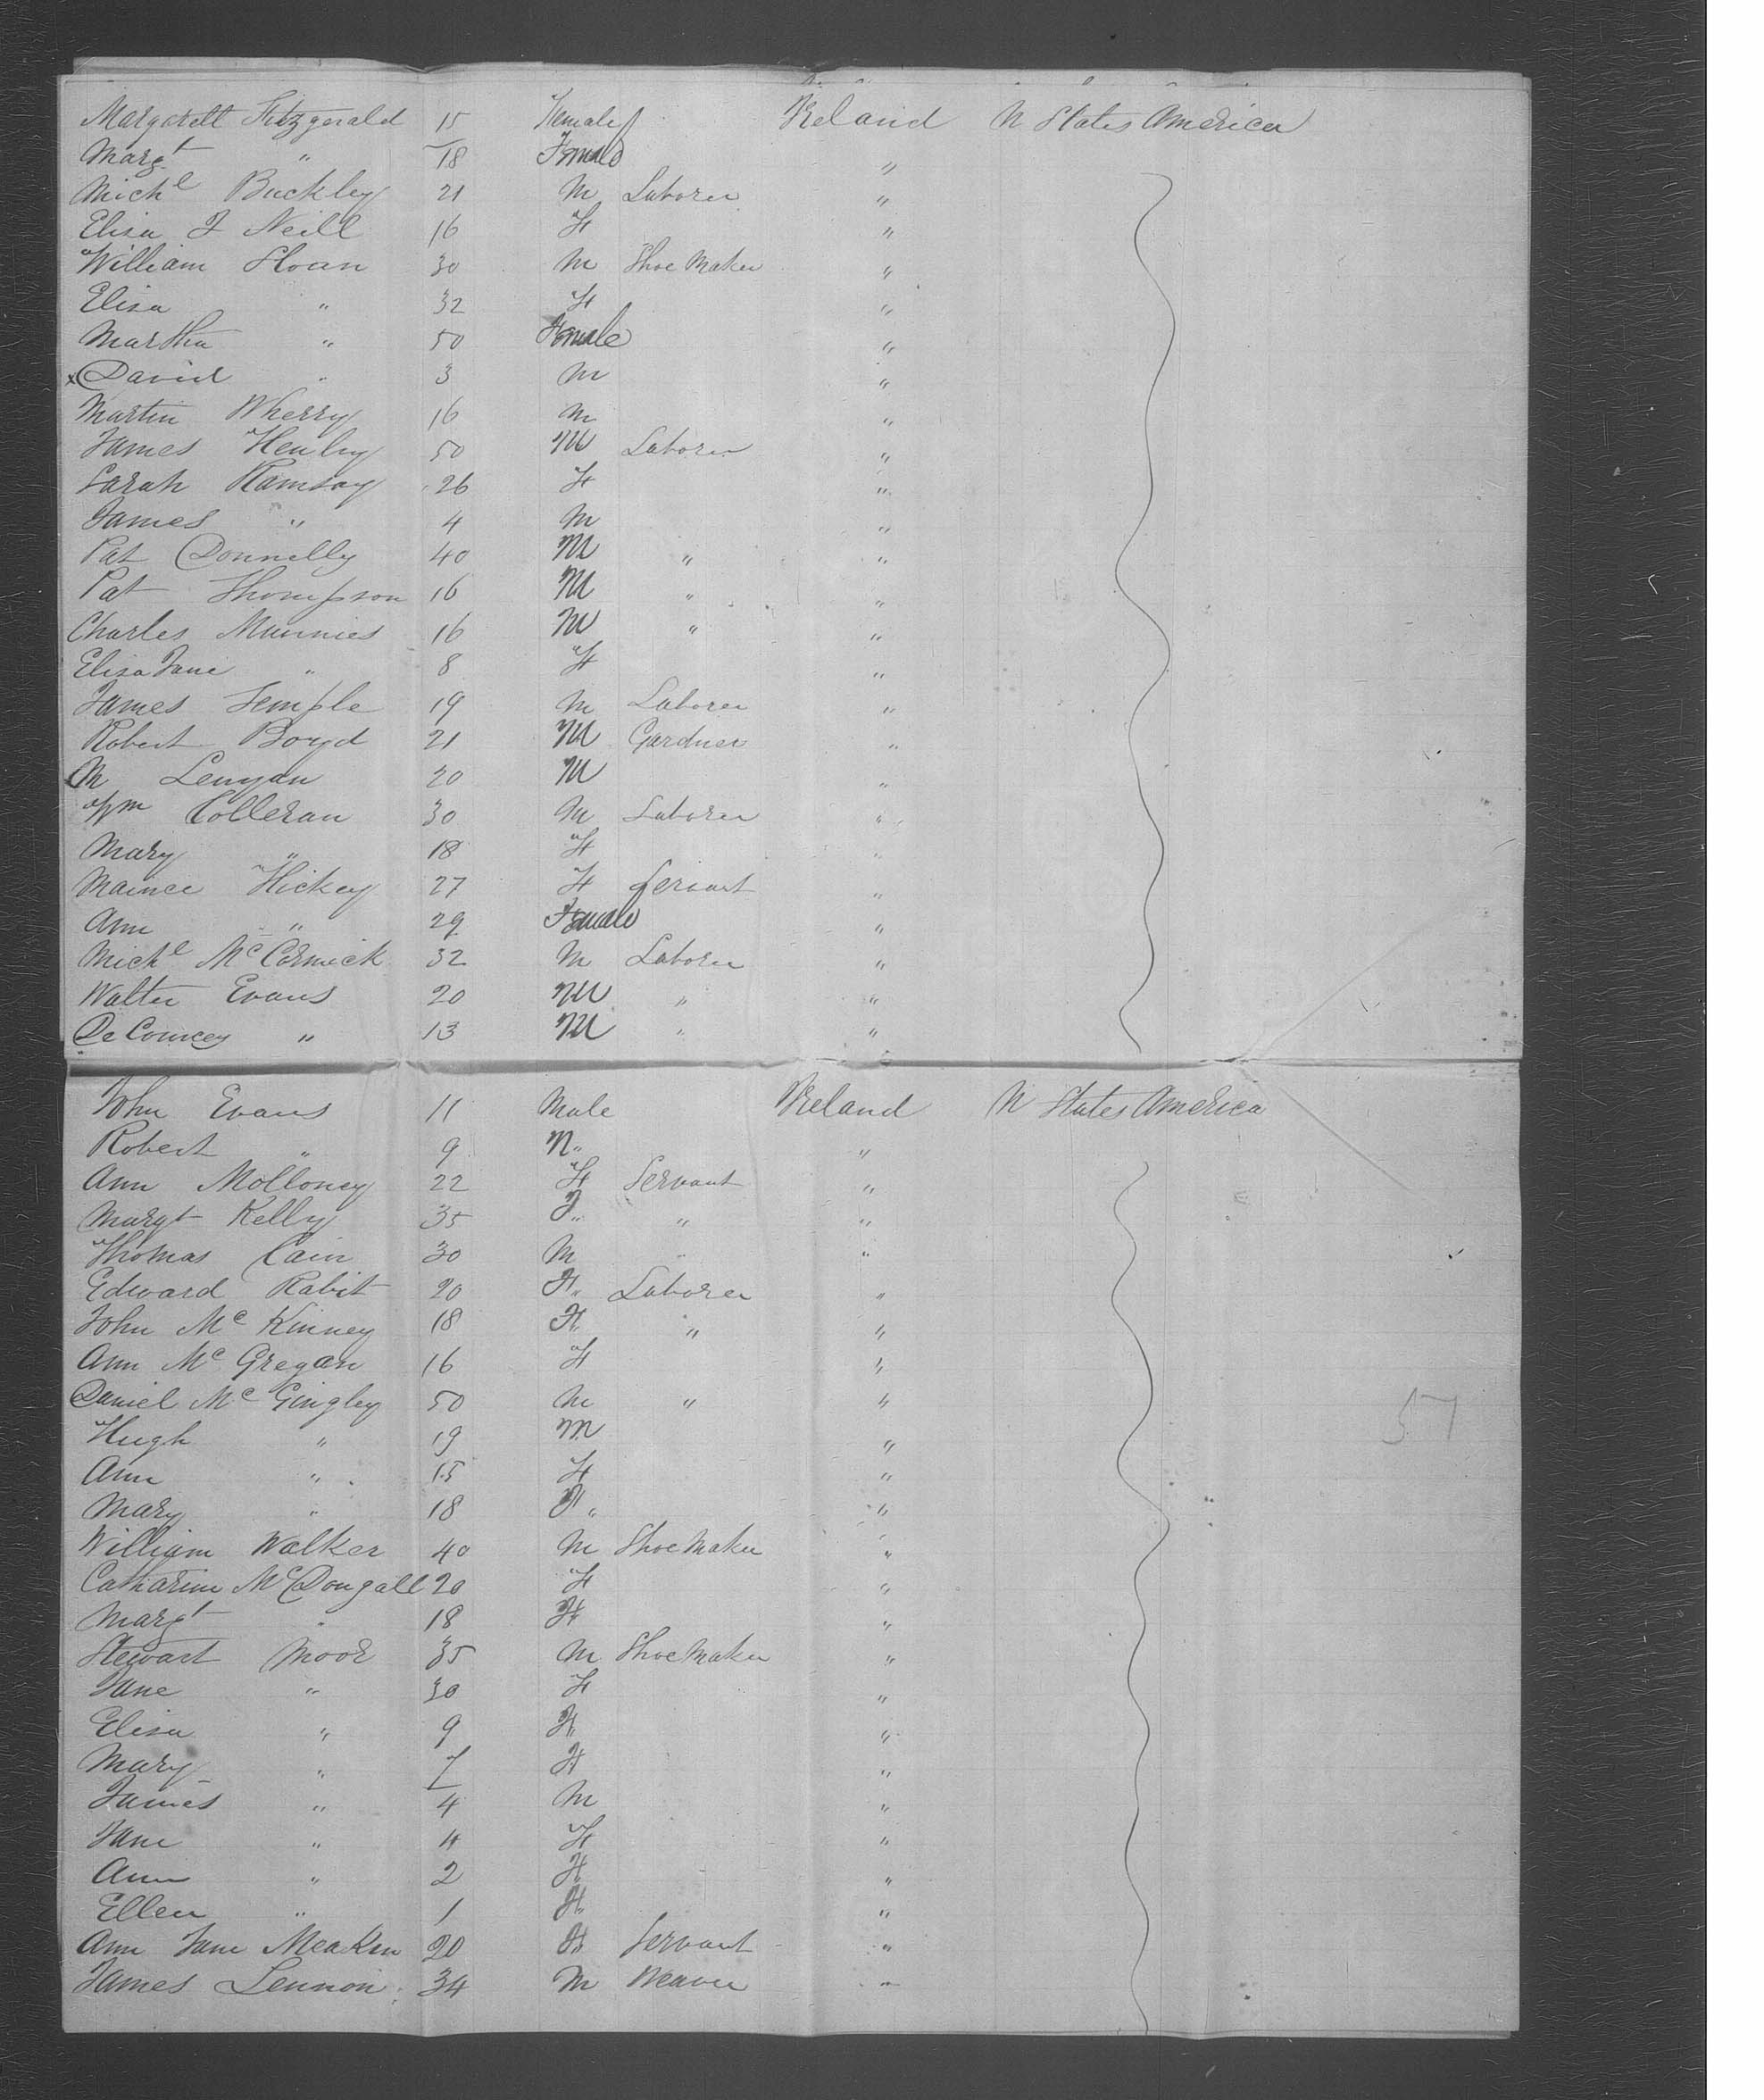 Margarett Fitzgerald 15 Female Ireland U States America
Margt " 18 Female "
Michl Buckley 21 M Laborer "
Eliza J Neill 16 F "
William Sloan 30 M Shoe Maker "
Eliza " 32 F "
Martha " 50 Female "
x David " 3 M "
Martin Wherry 16 M "
James Henley 50 M Laborer "
Sarah Ramsay 26 F "
James " 4 M "
Pat Donnelly 40 M " "
Pat Thompson 16 M " "
Charles Munnies 16 M " "
Eliza Jane " 8 F "
James Temple 19 M Laborer "
Robert Boyd 21 M Gardner "
M 20 M "
Wm Colleran 30 M Laborer "
Mary " 18 F "
Hickey 27 F Servant "
Ann " 29 Female "
Michl McCormick 32 M Laborer "
Walter Evans 20 M " "
De Courcey " 13 M " "
John Evans 11 Male Ireland U States America
Robert " 9 M " "
Ann Molloney 22 F Servant "
Margt Kelly 35 F " " "
Thomas Cain 30 M " "
Edward Rabit 20 F " Laborer "
John Mc Kinney 18 F " " "
Ann Mc Gregan 16 F "
Daniel Mc Gingley 50 M " "
Hugh " 19 M "
Ann " 15 F "
Mary " 18 F " "
William Walker 40 M Shoe Maker "
Catharine McDougall 20 F "
Margt " 18 F "
Stewart Moor 35 M Shoe Maker "
Jane " 30 F "
Eliza " 9 F " "
Mary " 7 F "
James " 4 M "
Jane " 4 F "
Ann " 2 F "
Ellen " 1 F " "
Ann Jane Meakin 20 F Servant "
James Lennon 34 M Weaver "
57